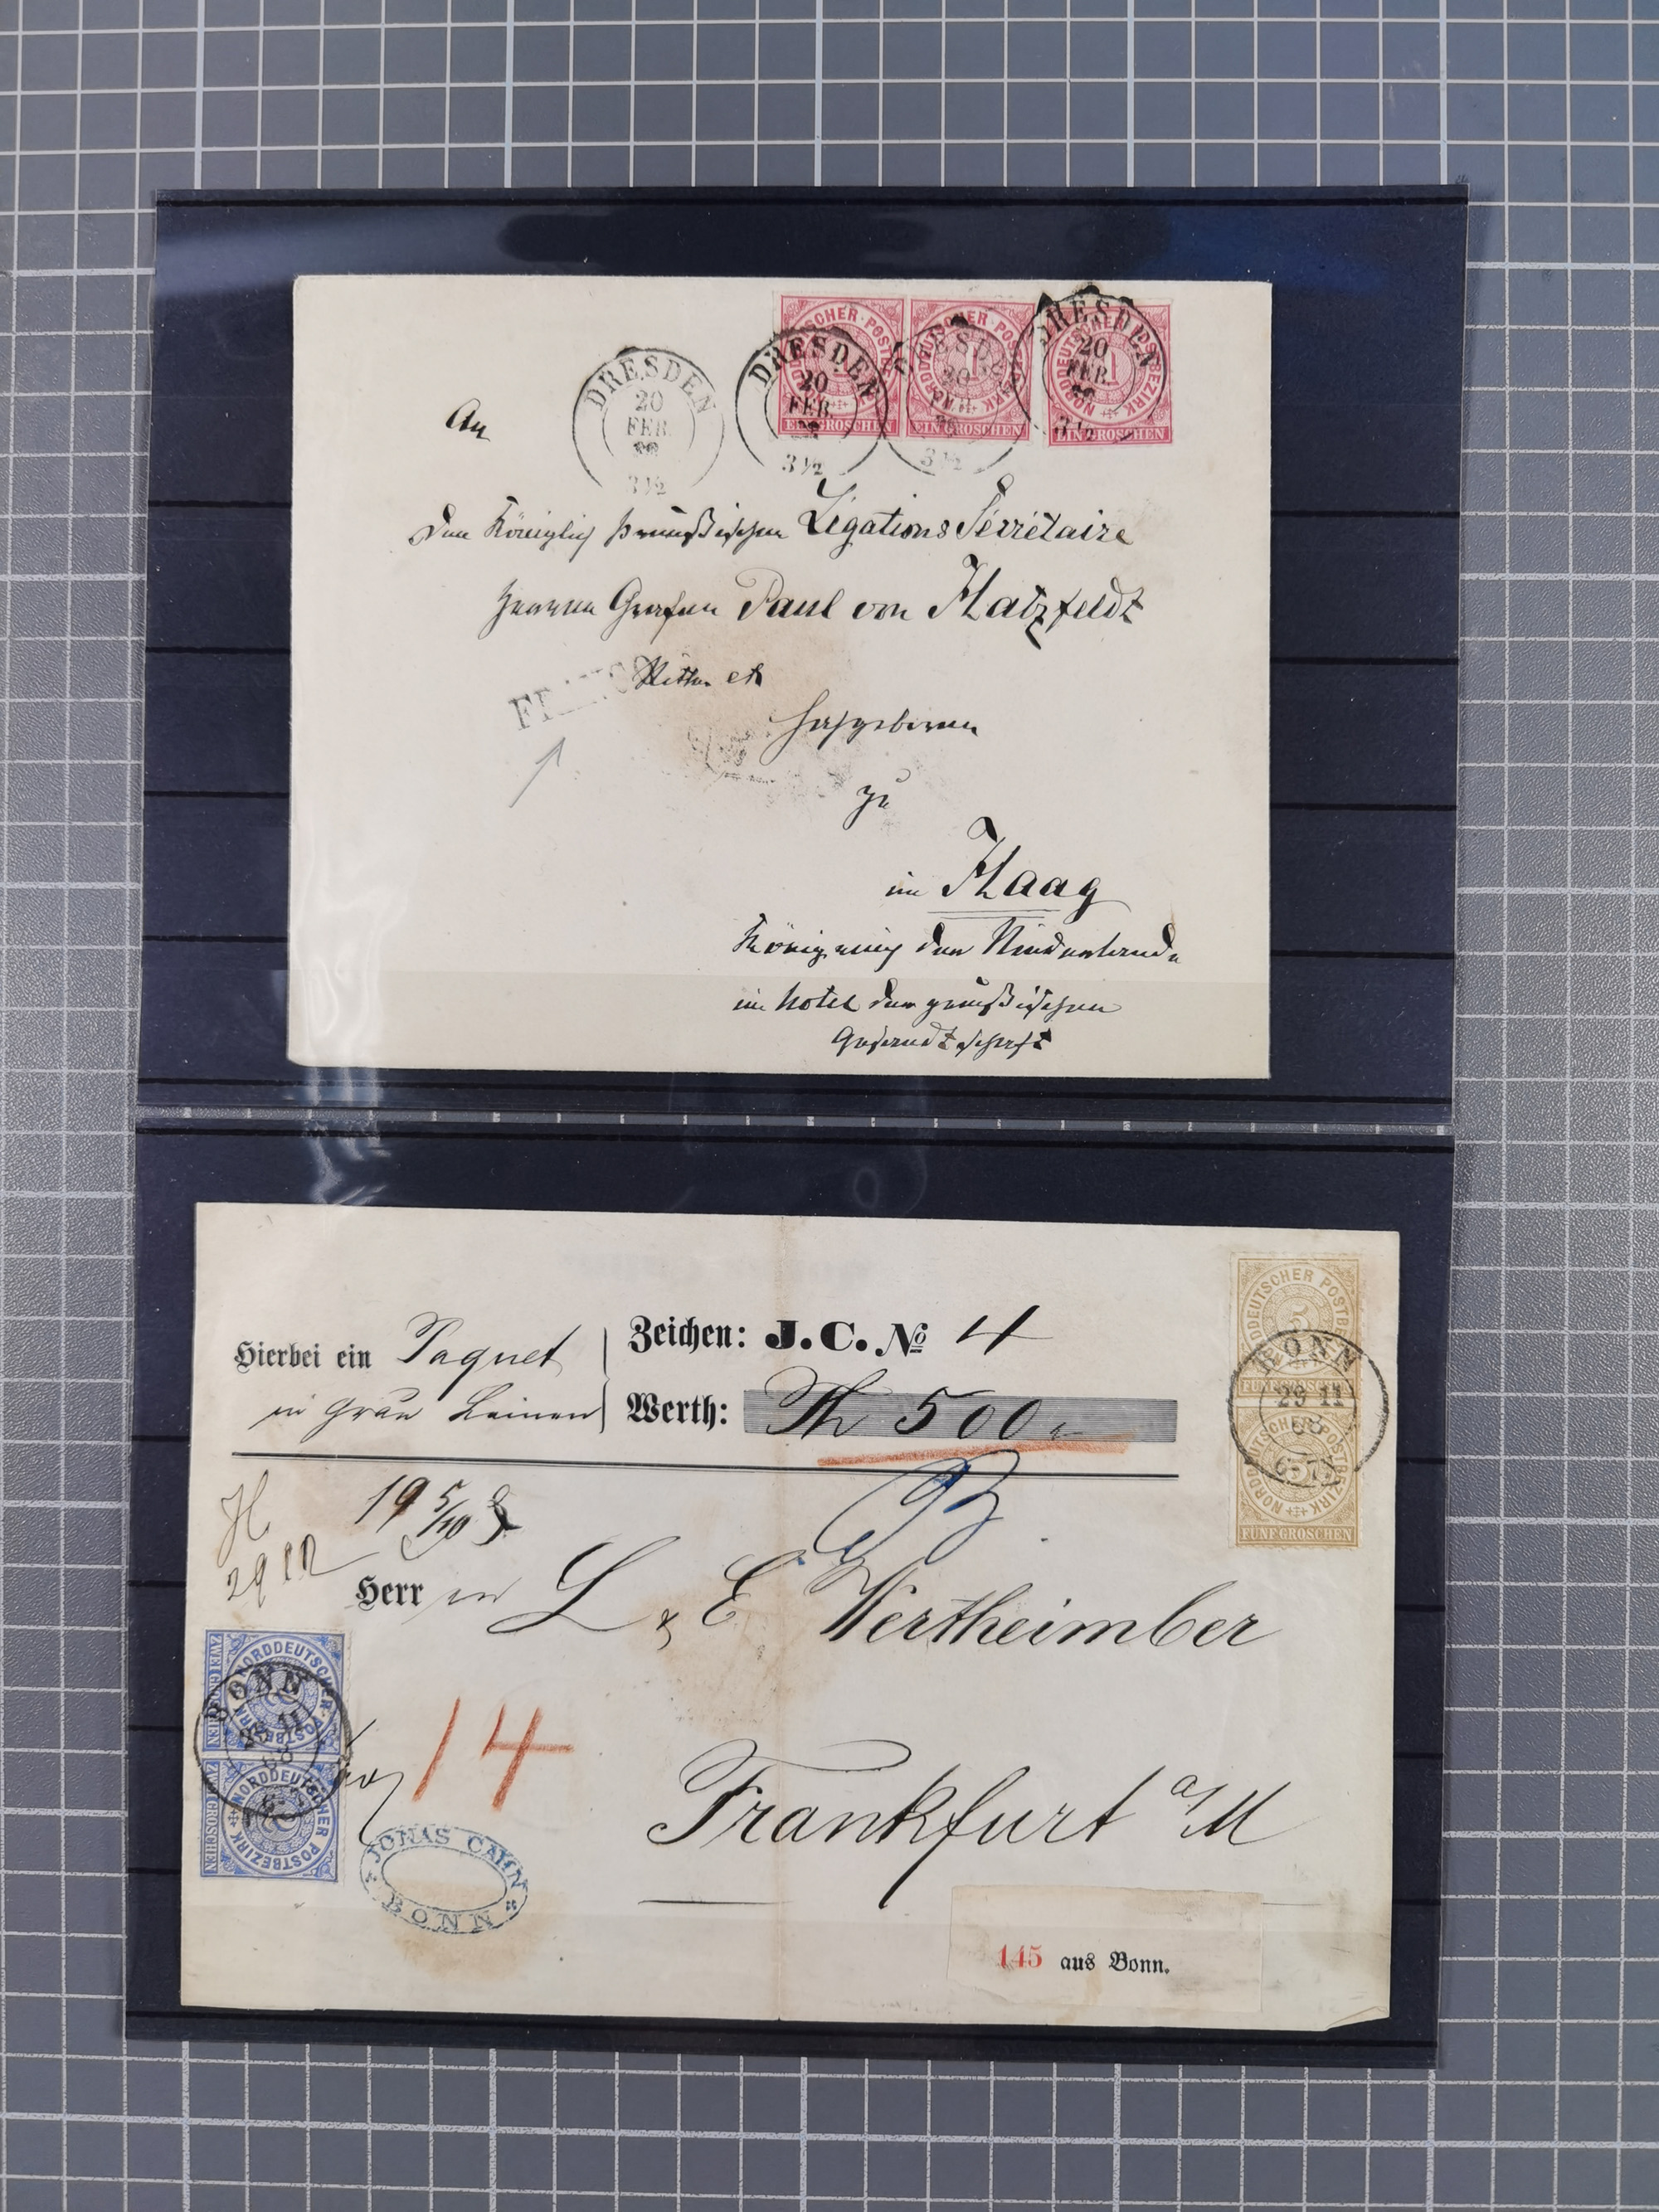 NORDDEUTSCHER POSTBEZIRK
EIN GROSCHEN
1
NORDDEUTSCHER POSTBEZIRK
EIN GROSCHEN
1
NORDDEUTSCHER POSTBEZIRK
EIN GROSCHEN
DRESDEN
20
FEB.
3½
DRESDEN
20
FEB.
3½
DRESDEN
20
FEB.
3½
DRESDEN
20
FEB.
3½
An
den Königlich preußischen Légations Sécrétaire
Herrn Grafen Paul von Hatzfeldt
FRANCO
Ritter etc
Hochgeboren
zu
im Haag
Königreich der Niederlande
im Hotel der preußischen
Gesandtschaft
Hierbei ein Paquet
in grau Leinen
Zeichen: J.C. No 4
Werth: Th 500
NORDDEUTSCHER POSTBEZIRK
5
FÜNF GROSCHEN
NORDDEUTSCHER POSTBEZIRK
5
FÜNF GROSCHEN
BONN
29 11
68
6-7
19 5/10
H
29
Herr en L & E Wertheimber
NORDDEUTSCHER POSTBEZIRK
2
ZWEI GROSCHEN
NORDDEUTSCHER POSTBEZIRK
2
ZWEI GROSCHEN
BONN
68
14
Frankfurt a/M
JONAS CAHN
BONN
145 aus Bonn.